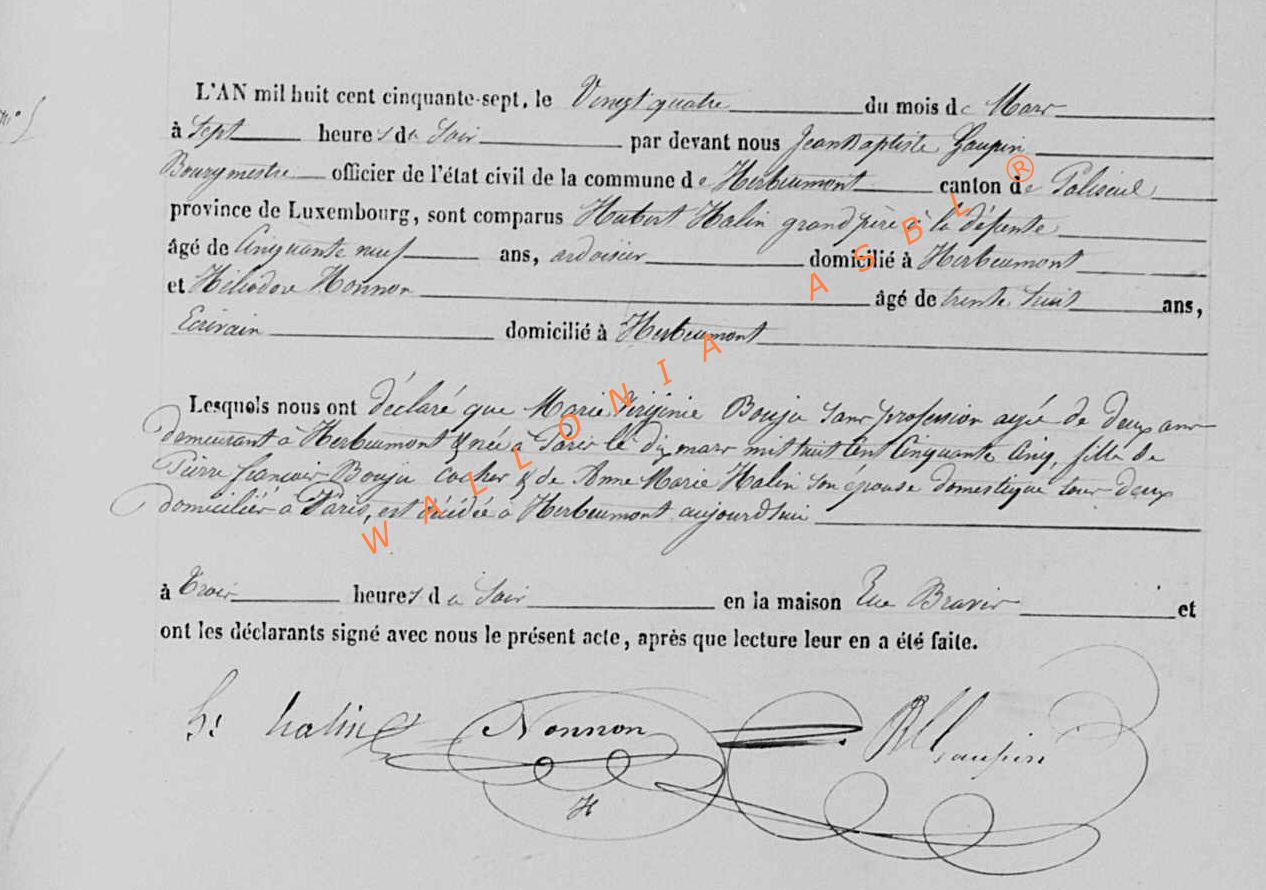 L'AN mil huit cent cinquante-sept, le Vingt quatre du mois de Mars
à Sept heures du Soir par devant nous Jean Baptiste Gaupin
Bourgmestre officier de l'état civil de la commune de Herbeumont canton de Paliseul
province de Luxembourg, sont comparus Hubert Halin grand père à la défunte
âgé de Cinquante neuf ans, ardoisier domicilié à Herbeumont
et Héliodore Nonnon âgé de trente huit ans,
Ecrivain domicilié à Herbeumont
Lesquels nous ont déclaré que Marie Virginie Bouju sans profession agée de deux ans
demeurant à Herbeumont & née à Paris le dix mars mil huit Cent Cinquante Cinq, fille de
Pierre françois Bouju cocher & de Anne Marie Halin son épouse domestique tous deux
domiciliés à Paris, est décédée à Herbeumont aujourd'hui
à Trois heures du Soir en la maison Rue Bravis et
ont les déclarants signé avec nous le présent acte, après que lecture leur en a été faite.
ht halin Nonnon Gaupin
H
WALLONIA ASBL ®